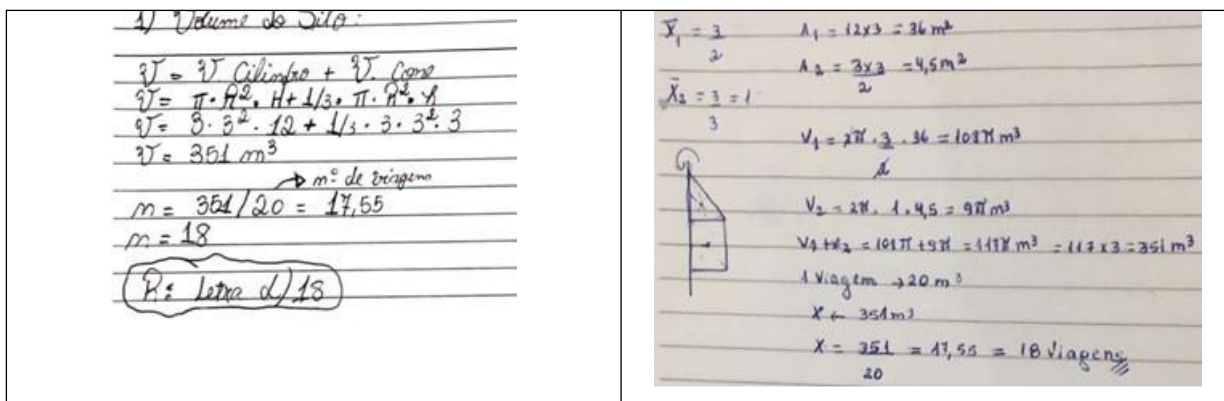 1) Volume do Silo:
V = V Cilindro + V. Cone
V = π · R². H + 1/3 · π · R² · h
V = 3 · 3² · 12 + 1/3 · 3 · 3² · 3
V = 351 m³
nº de viagens
n = 351/20 = 17,55
n = 18
R: Letra d) 18
X̄₁ = 3/2
A₁ = 12x3 = 36 m²
A₂ = 3x3/2 = 4,5 m²
X̄₂ = 3/3 = 1
V₁ = 2π · 3/2 · 36 = 108π m³
V₂ = 2π · 1 · 4,5 = 9π m³
V₁ + V₂ = 108π + 9π = 117π m³ = 117 x 3 = 351 m³
1 Viagem → 20 m³
X ← 351 m³
X = 351/20 = 17,55 = 18 Viagens